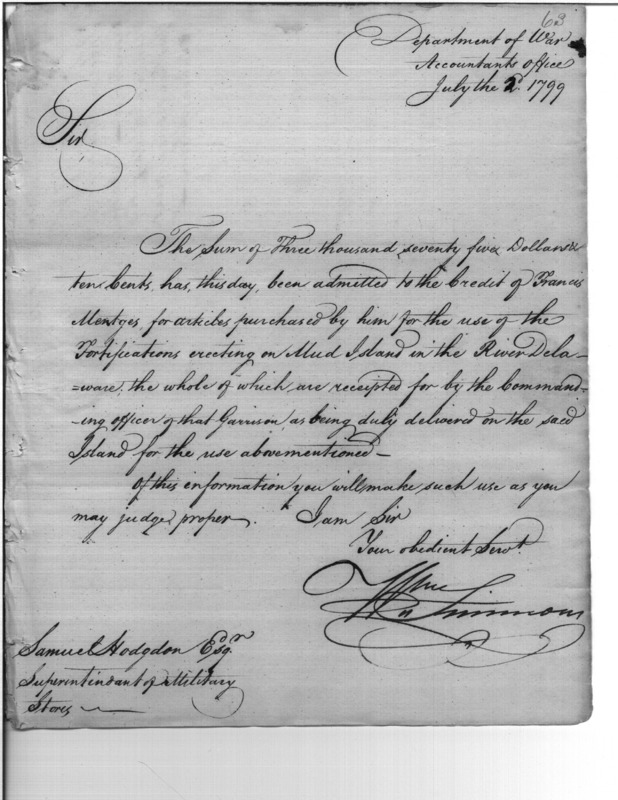 63
Department of War
Accountants office
July the 2d. 1799
Sir,
The Sum of Three thousand, seventy five Dollars &
ten Cents, has, this day, been admitted to the Credit of Francis
Mentges, for articles purchased by him for the use of the
Fortifications erecting on Mud Island in the River Dela-
=ware, the whole of which are receipted for by the Command-
-ing officer of that Garrison, as being duly delivered on the said
Island for the use abovementioned—
Of this information you will make such use as you
may judge proper. I am Sir
Your obedient Servt.
Wm Simmons
Samuel Hodgdon Esqr
Superintendant of Military
Stores